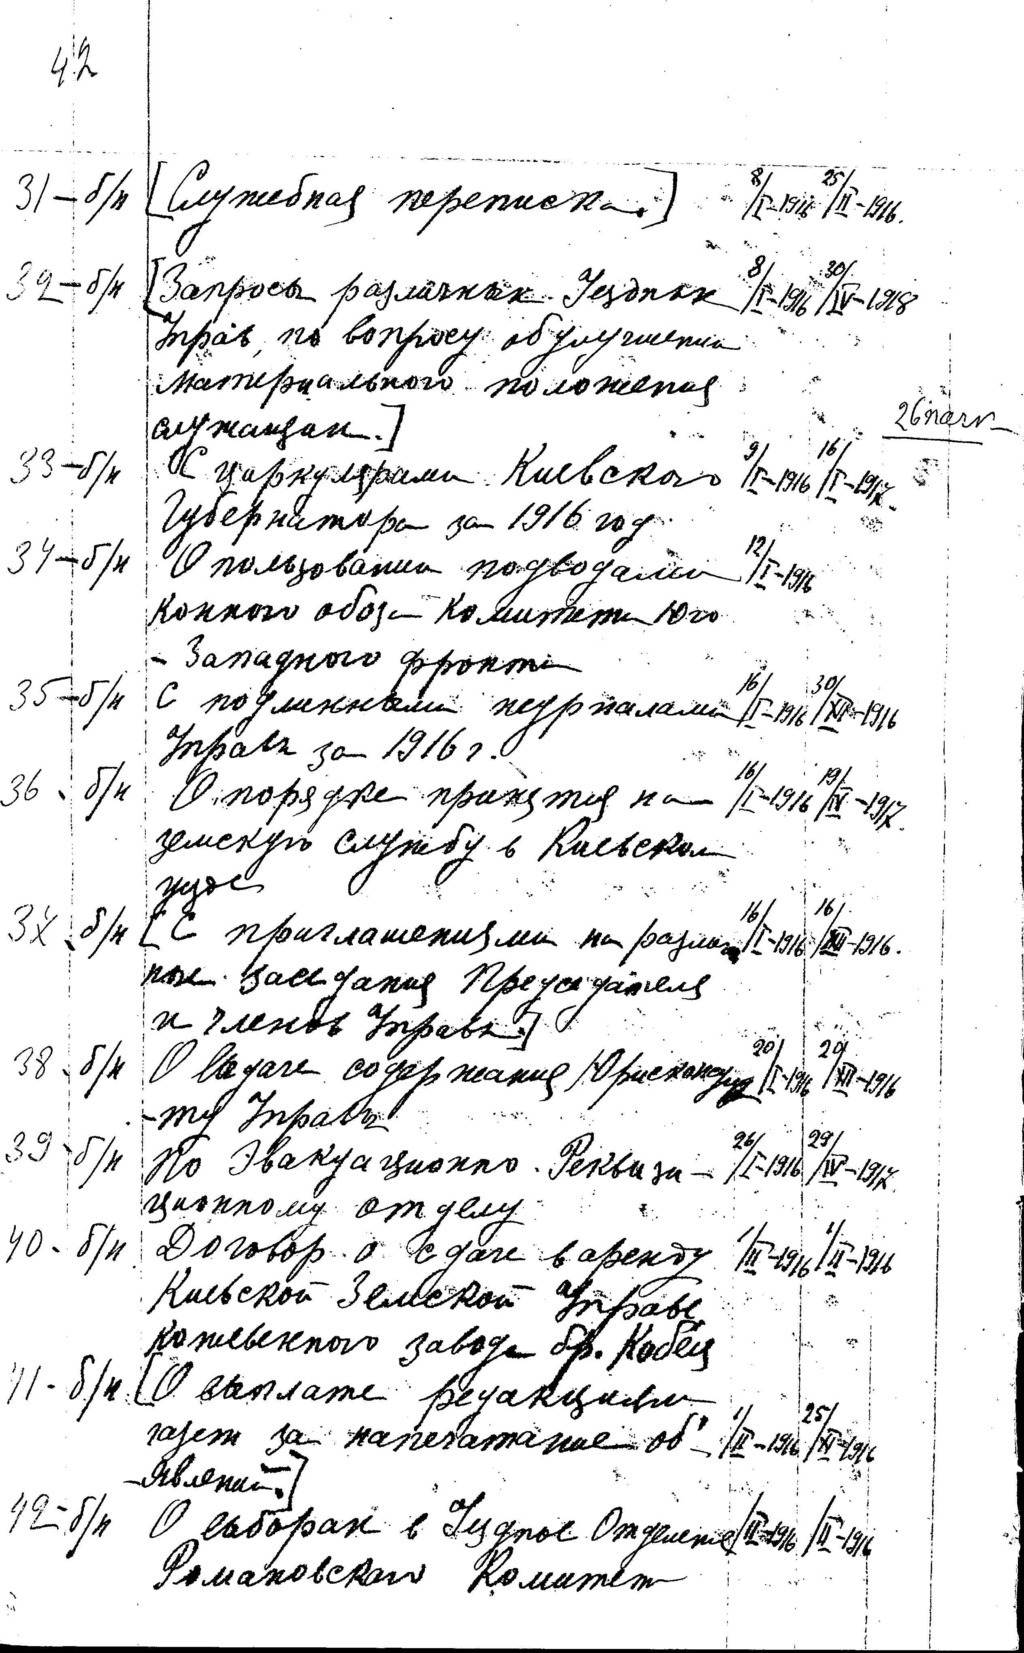 42
31 – б/н [Служебная переписка.] 8/I-1916 25/II-1916.
32 – б/н [Запросы различных Уездных 8/I-1916 30/IV-1918
Управ, по вопросу об улучшении
материального положения
служащих.]
26 
33 – б/н С циркулярами Киевского 9/I-1916 16/I-1917.
Губернатора за 1916 год.
34 – б/н О пользовании подводами 12/I-1916
конного обоза Комитета Юго
- Западного фронта
35 – б/н С подлинными журналами 16/I-1916 30/XII-1916
Управы за 1916 г.
36. б/н О порядке принятия на 16/I-1916 19/IV-1917.
земскую службу в Киевском
уезде
37. б/н [С приглашениями на различ 16/I-1916 16/XII-1916.
ные заседания Председателя
и членов Управы.]
38. б/н О выдаче содержания Юрисконсуль 20/I-1916 20/XII-1916
-ту Управы
39 - б/н По Эвакуационно. Реквизи – 26/I-1916 29/IV-1917.
ционному отделу
40 - б/н Договор о сдаче в аренду 1/II-1916 1/II-1916
Киевской Земской Управе
кожевенного завода бр. Кобец
41 - б/н [О выплате редакциям
газет за напечатание об'– 1/II-1916 25/XI-1916
-явлений.]
42 - б/н О выборах в Уездное Отделение /II-1916 /II-1916
Романовского Комитета